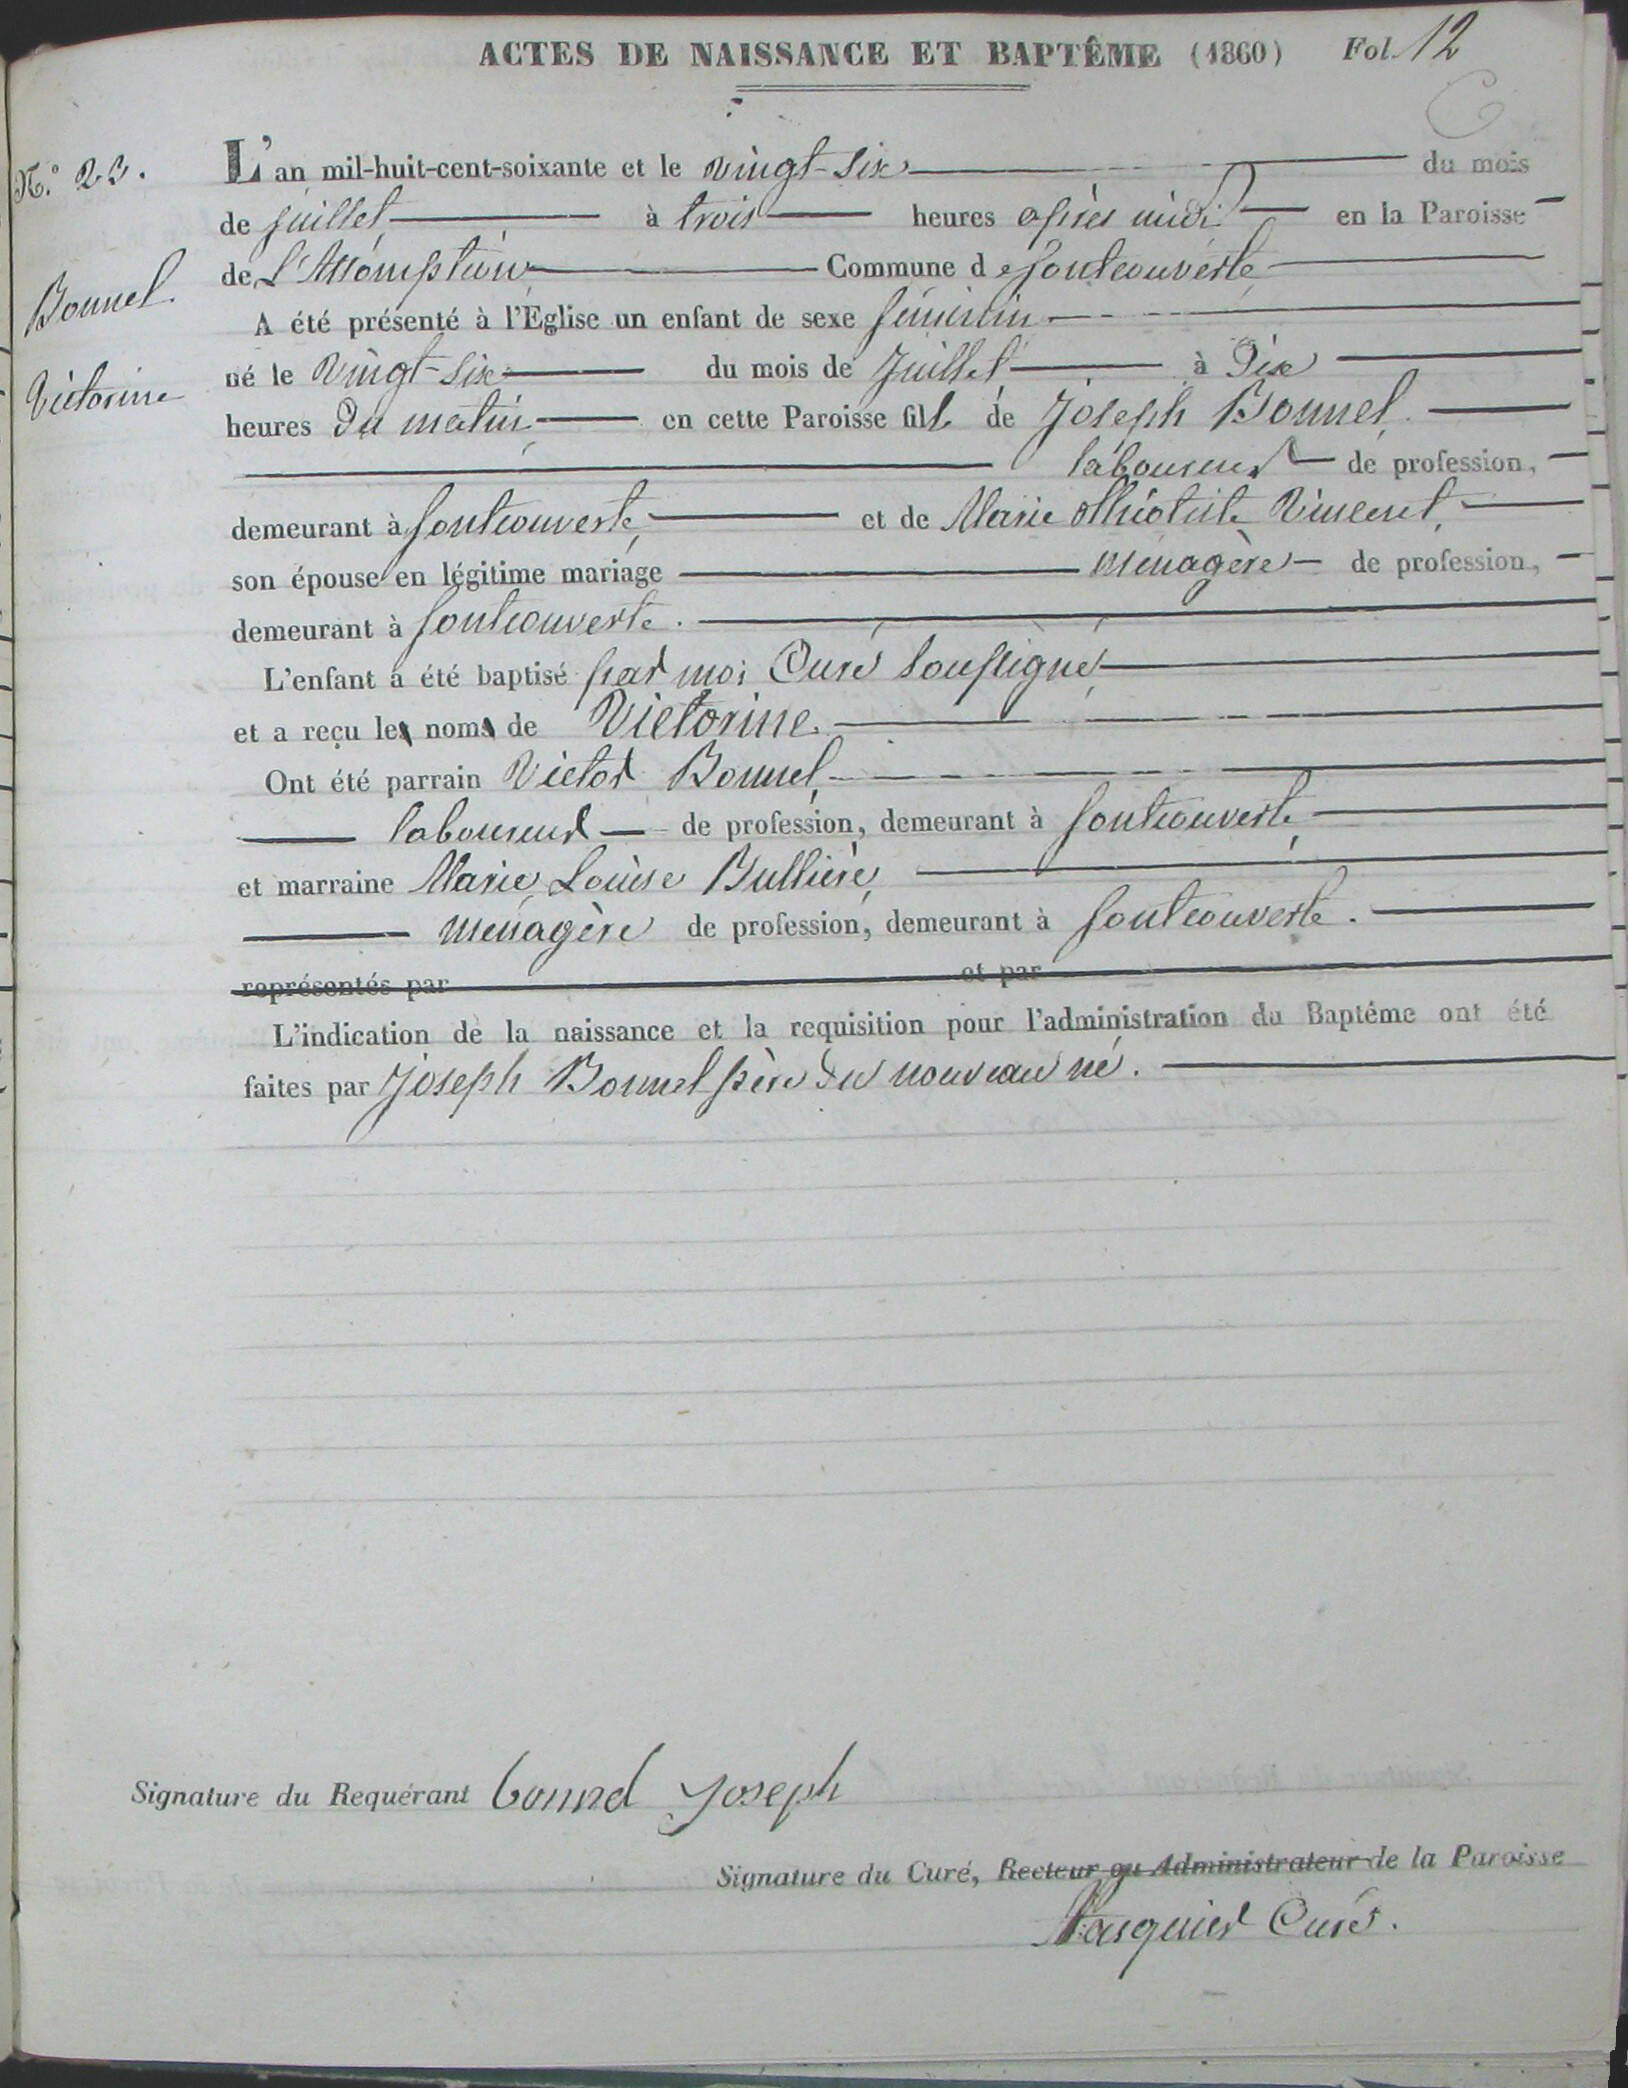 ACTES DE NAISSANCE ET BAPTÊME (1860) Fol. 12
N.° 23.
Bonnel
Victorine
L'an mil-huit-cent-soixante et le vingt-six du mois
de juillet à trois heures après midi en la Paroisse
de L'Assomption Commune de fontcouverte
A été présenté à l'Eglise un enfant de sexe féminin
né le vingt-six du mois de Juillet à Dix
heures du matin en cette Paroisse fille de Joseph Bonnel,
laboureur de profession,
demeurant à fontcouverte, et de Marie Vincent,
son épouse en légitime mariage ménagère de profession,
demeurant à fontcouverte.
L'enfant a été baptisé par moi Curé soussigné
et a reçu les noms de Victorine.
Ont été parrain Victor Bonnel,
laboureur de profession, demeurant à fontcouverte,
et marraine Marie Louise Bullière,
ménagère de profession, demeurant à fontcouverte.
représentés par et par
L'indication de la naissance et la requisition pour l'administration du Baptême ont été
faites par Joseph Bonnel père du nouveau né.
Signature du Requérant bonnel joseph
Signature du Curé, Recteur ou Administrateur de la Paroisse
Curé.